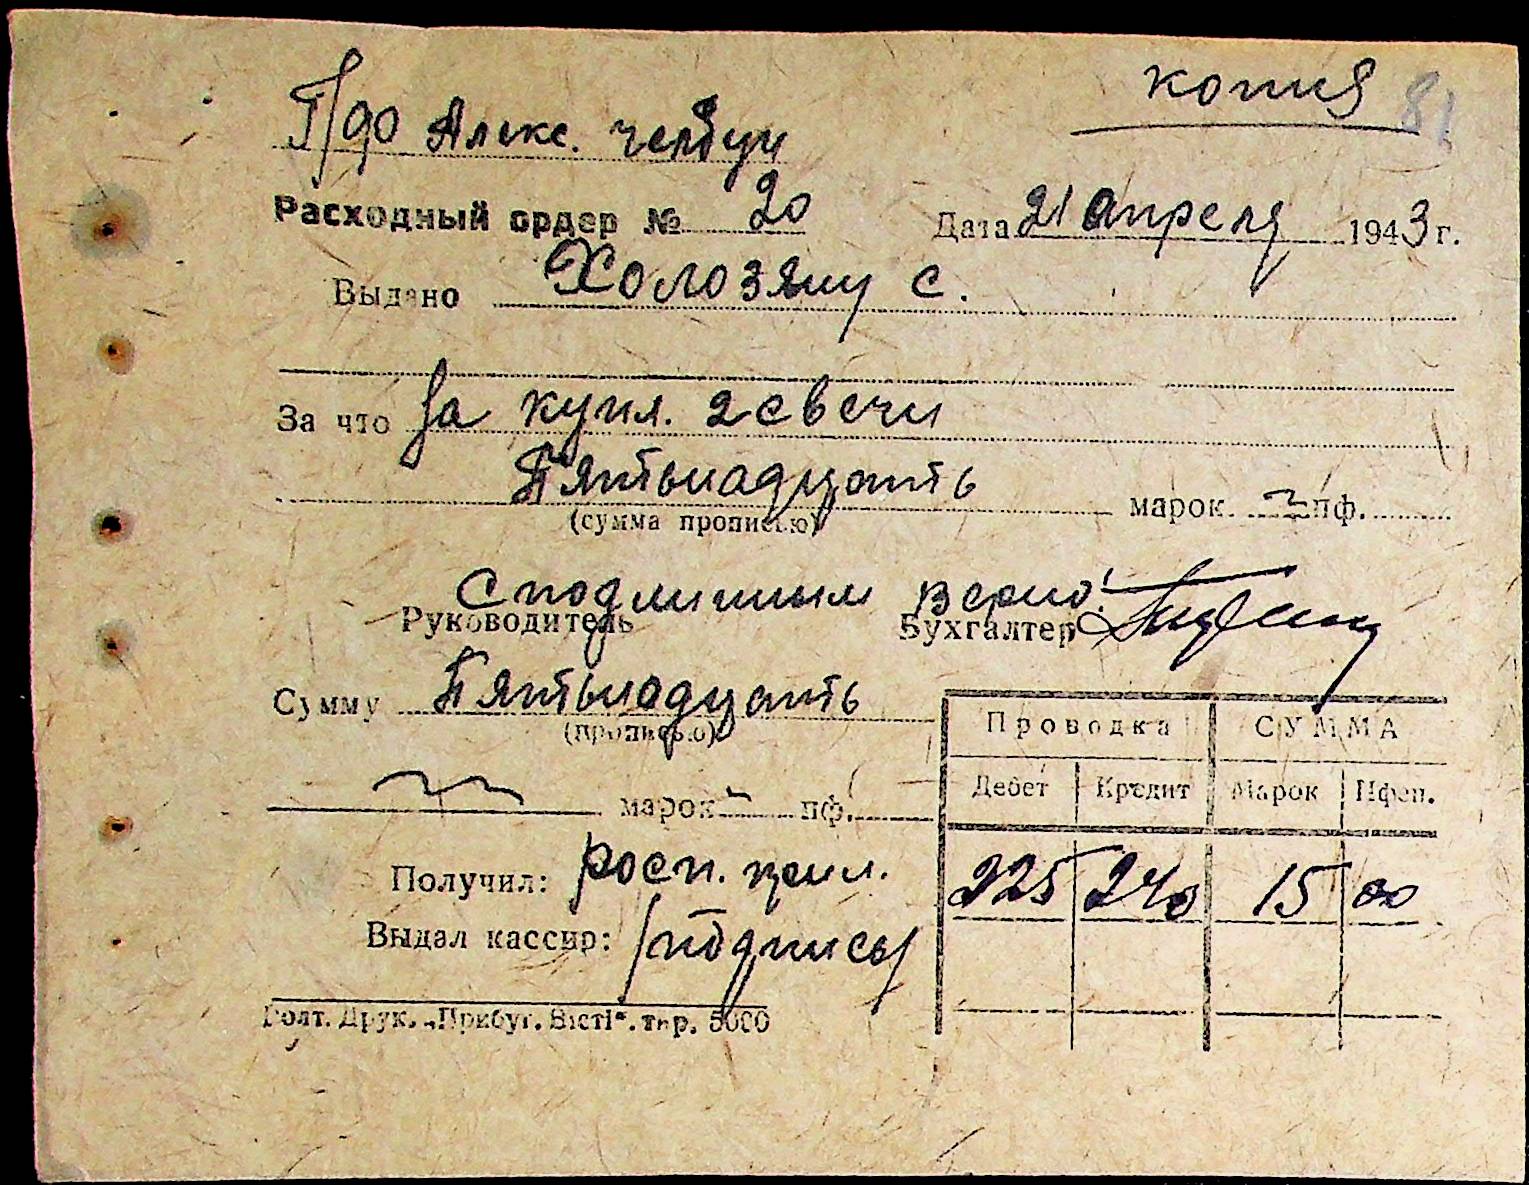 копия 81
П/до Алекс. чербуи
Расходный ордер № 20 Дата 21 Апреля 1943 г.
Выдано Холозяну с.
За что За купл. 2 свечи
Пятьнадцать марок пф.
(сумма прописью)
С подлинным верно!
Руководитель Бухгалтер
Сумму Пятьнадцать
(прописью)
марок - пф.
Проводка СУММА
Дебет Кредит Марок Пфен.
225 240 15 00
Получил: росп.
Выдал кассир: /подпись/
Голт. Друк. „Прибуг. Вісті“. тир. 5000